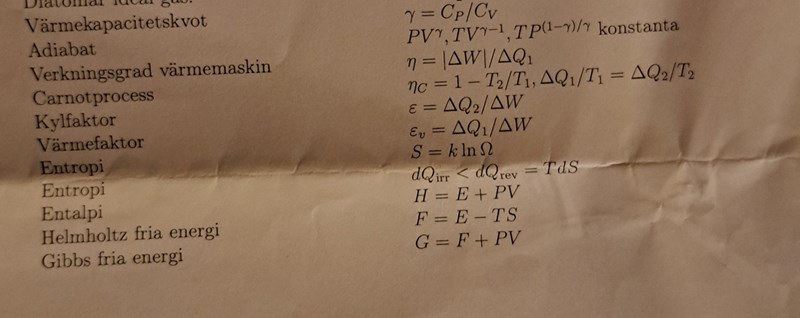 Diatomär ideal gas:
Värmekapacitetskvot γ = C_P/C_V
Adiabat PV^γ, TV^{γ−1}, TP^{(1−γ)/γ} konstanta
Verkningsgrad värmemaskin η = |ΔW|/ΔQ₁
Carnotprocess η_C = 1 − T₂/T₁, ΔQ₁/T₁ = ΔQ₂/T₂
Kylfaktor ε = ΔQ₂/ΔW
Värmefaktor ε_v = ΔQ₁/ΔW
Entropi S = k ln Ω
Entropi dQ_irr < dQ_rev = TdS
Entalpi H = E + PV
Helmholtz fria energi F = E − TS
Gibbs fria energi G = F + PV